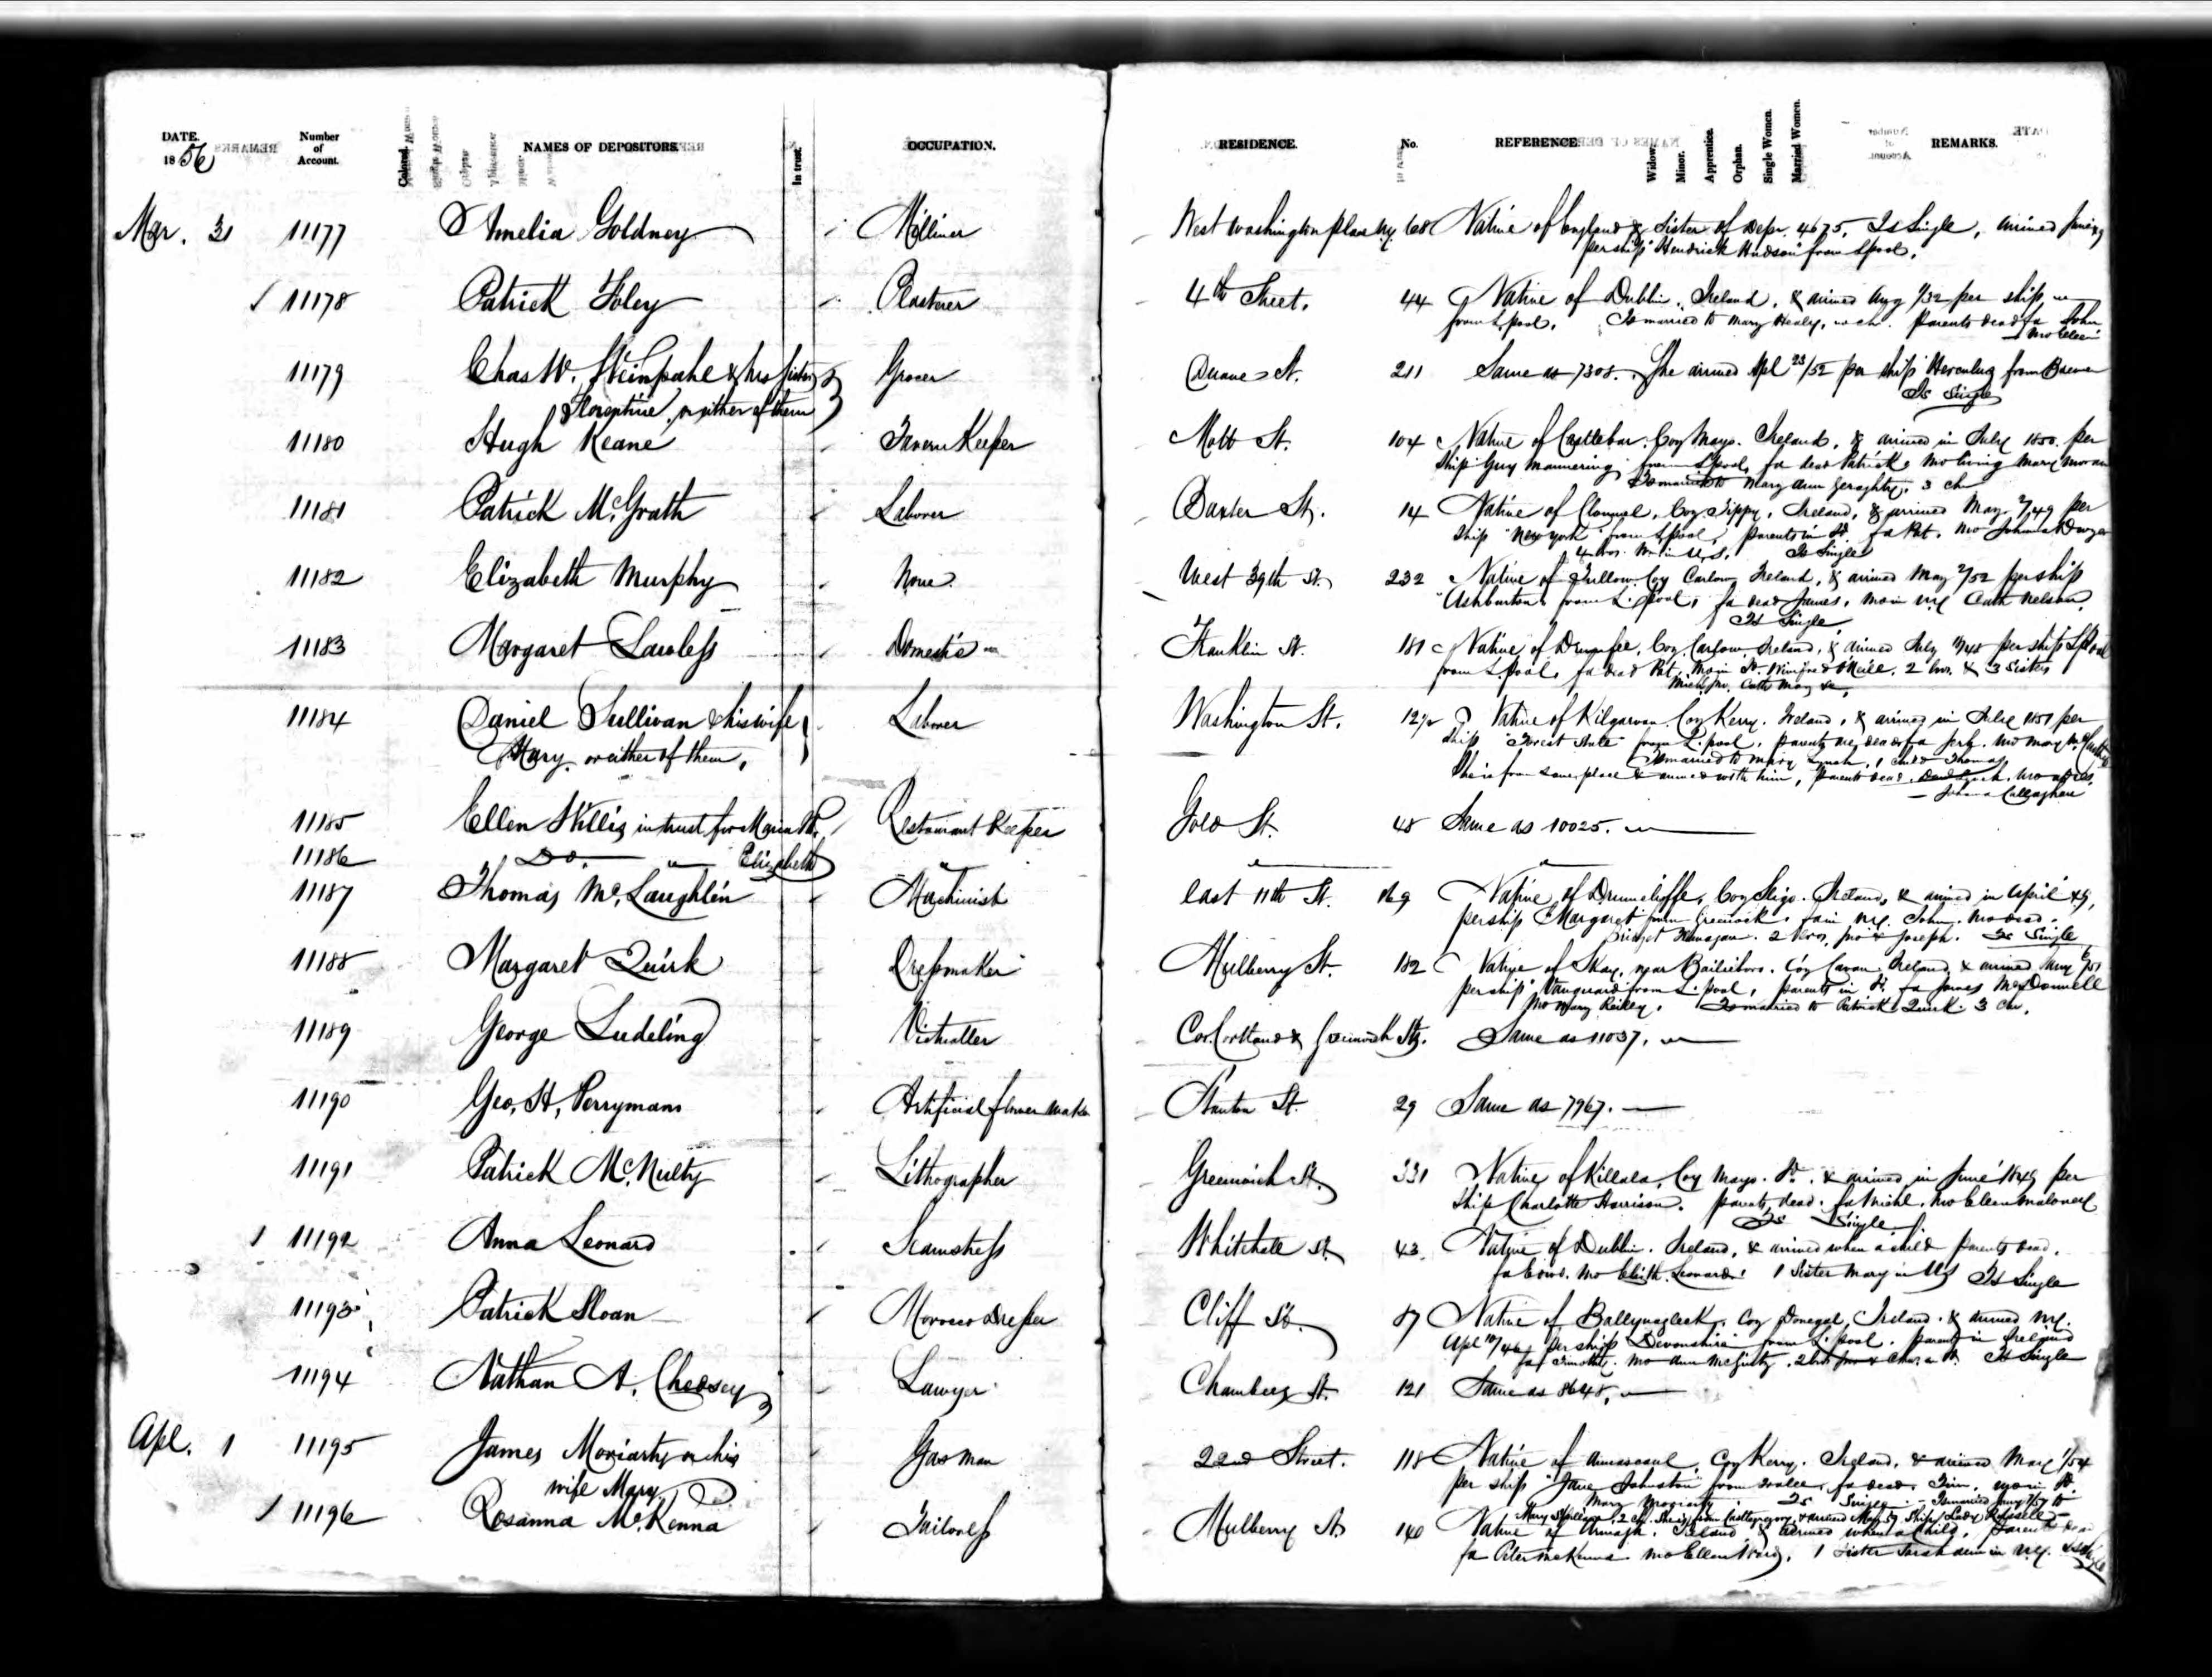 DATE. 1856 Number of Account. Colored. NAMES OF DEPOSITORS. In trust. OCCUPATION. RESIDENCE. No. REFERENCE Widow. Minor. Apprentice. Orphan. Single Women. Married Women. REMARKS.
Mar. 31 11177 Amelia Goldney Milliner West Washington place NY. 68 Native of England & Sister of Depr. 4675. Is Single, arrived
per ship "Hendrick Hudson" from Lpool.
11178 Patrick Foley Plasterer 4th Street. 44 Native of Dublin, Ireland, & arrived Aug /32 per ship
from L.pool. Is married to Mary Healy, no ch. Parents dead fa John
Mo Ellen
11179 Chas W. Steinpahl & his sister Grocer Duane St. 211 Same as 7308. She arrived Apl 23/52 per ship Hercules from Bremen
Florentine, or either of them Is Single
11180 Hugh Keane Tavern Keeper Mott St. 104 Native of Castlebar. Coy Mayo. Ireland, & arrived in July 1850 per
ship Guy Mannering from Lpool, fa dead Patrick, Mo living Mary Moran
Is married to Mary Ann Geraghty, 3 ch
11181 Patrick McGrath Laborer Baxter St. 14 Native of Clonmel, Coy Tippy, Ireland, & arrived May /49 per
ship "New York" from Lpool, parents in Id. fa Pat. Mo Johna Dwyer
4 bros. in U.S. Is Single
11182 Elizabeth Murphy None. West 39th St. 232 Native of Tullow Coy Carlow Ireland, & arrived May 2/52 per ship
"Ashburton" from L.pool, fa dead James, Mo in NY Cath Nelson,
Is Single
11183 Margaret Lawless Domestic Franklin St. 181 Native of Coy. Carlow, Ireland, & arrived July per ship Lpool
from L.pool, fa dead Pat, Mo in Id. Winifred O'Neill, 2 bros. & 3 Sisters
11184 Daniel Sullivan & his wife Laborer Washington St. 12½ Native of Kilgarvan Coy Kerry. Ireland, & arrived in July 1851 per
Mary, or either of them. ship "Forest State" from L.pool, parents dead fa Jery. Mo Mary McCarthy
Is married to Mary Lynch, 1 child Thomas
She is from same place & arrived with him, parents dead.
Johana Callaghan
11185 Ellen Willis in trust for Maria Restaurant Keeper Gold St. 48 Same as 10025.
11186 Do. " Elizabeth " " "
11187 Thomas McLaughlin Machinist East 11th St. 169 Native of Drumcliffe, Coy Sligo. Ireland, & arrived in April 49,
per ship Margaret from Greenock. fa in NY. John. Mo dead.
Bridget Flanagan. 2 bros, Jno & Joseph. Is Single
11188 Margaret Quirk Dressmaker Mulberry St. 182 Native of near Bailieboro. Coy Cavan Ireland, & arrived
per ship "Vanguard" from L.pool, parents in Id. fa James McDonnell
Mo Mary Reilley. Is married to Patrick Quirk 3 ch.
11189 George Ludeling Victualler Cor. Cortland & Greenwich Sts. Same as 11037.
11190 Geo. H. Perryman Artificial flower maker Stanton St. 29 Same as 7967.
11191 Patrick McNulty Lithographer Greenwich St. 331 Native of Killala, Coy Mayo. Id. & arrived in June 1849 per
ship Charlotte Harrison. parents dead. fa Michl. Mo Ellen Maloney
Is Single
11192 Anna Leonard Seamstress Whitehall St. 43 Native of Dublin. Ireland, & arrived when a child parents dead.
fa Edwd. Mo Elizth. Leonard. 1 Sister Mary in US Is Single
11193 Patrick Sloan Morocco Dresser Cliff St. 87 Native of Coy Donegal, Ireland. & arrived NY.
Apl 10/46 per ship Devonshire from L.pool. Parents in Ireland
fa Timothy. Mo Ann McGinty. 2 bros Jno & Chas. in Id. Is Single
11194 Nathan A. Chedsey Lawyer Chambers St. 121 Same as 8648.
Apl. 1 11195 James Moriarty or his Gas man 22nd Street. 118 Native of Annascaul, Coy Kerry. Ireland, & arrived May 1/54
wife Mary. per ship "Jane Johnston" from Tralee, fa dead, Tim, Mo in Id.
Mary Moriarty. Is Single. Is married
11196 Rosanna McKenna Tailoress Mulberry St 140 Native of Armagh. Ireland & arrived when a child, parents dead
fa Peter McKenna Mo Ellen Ward. 1 sister Sarah Ann in NY. Is Single